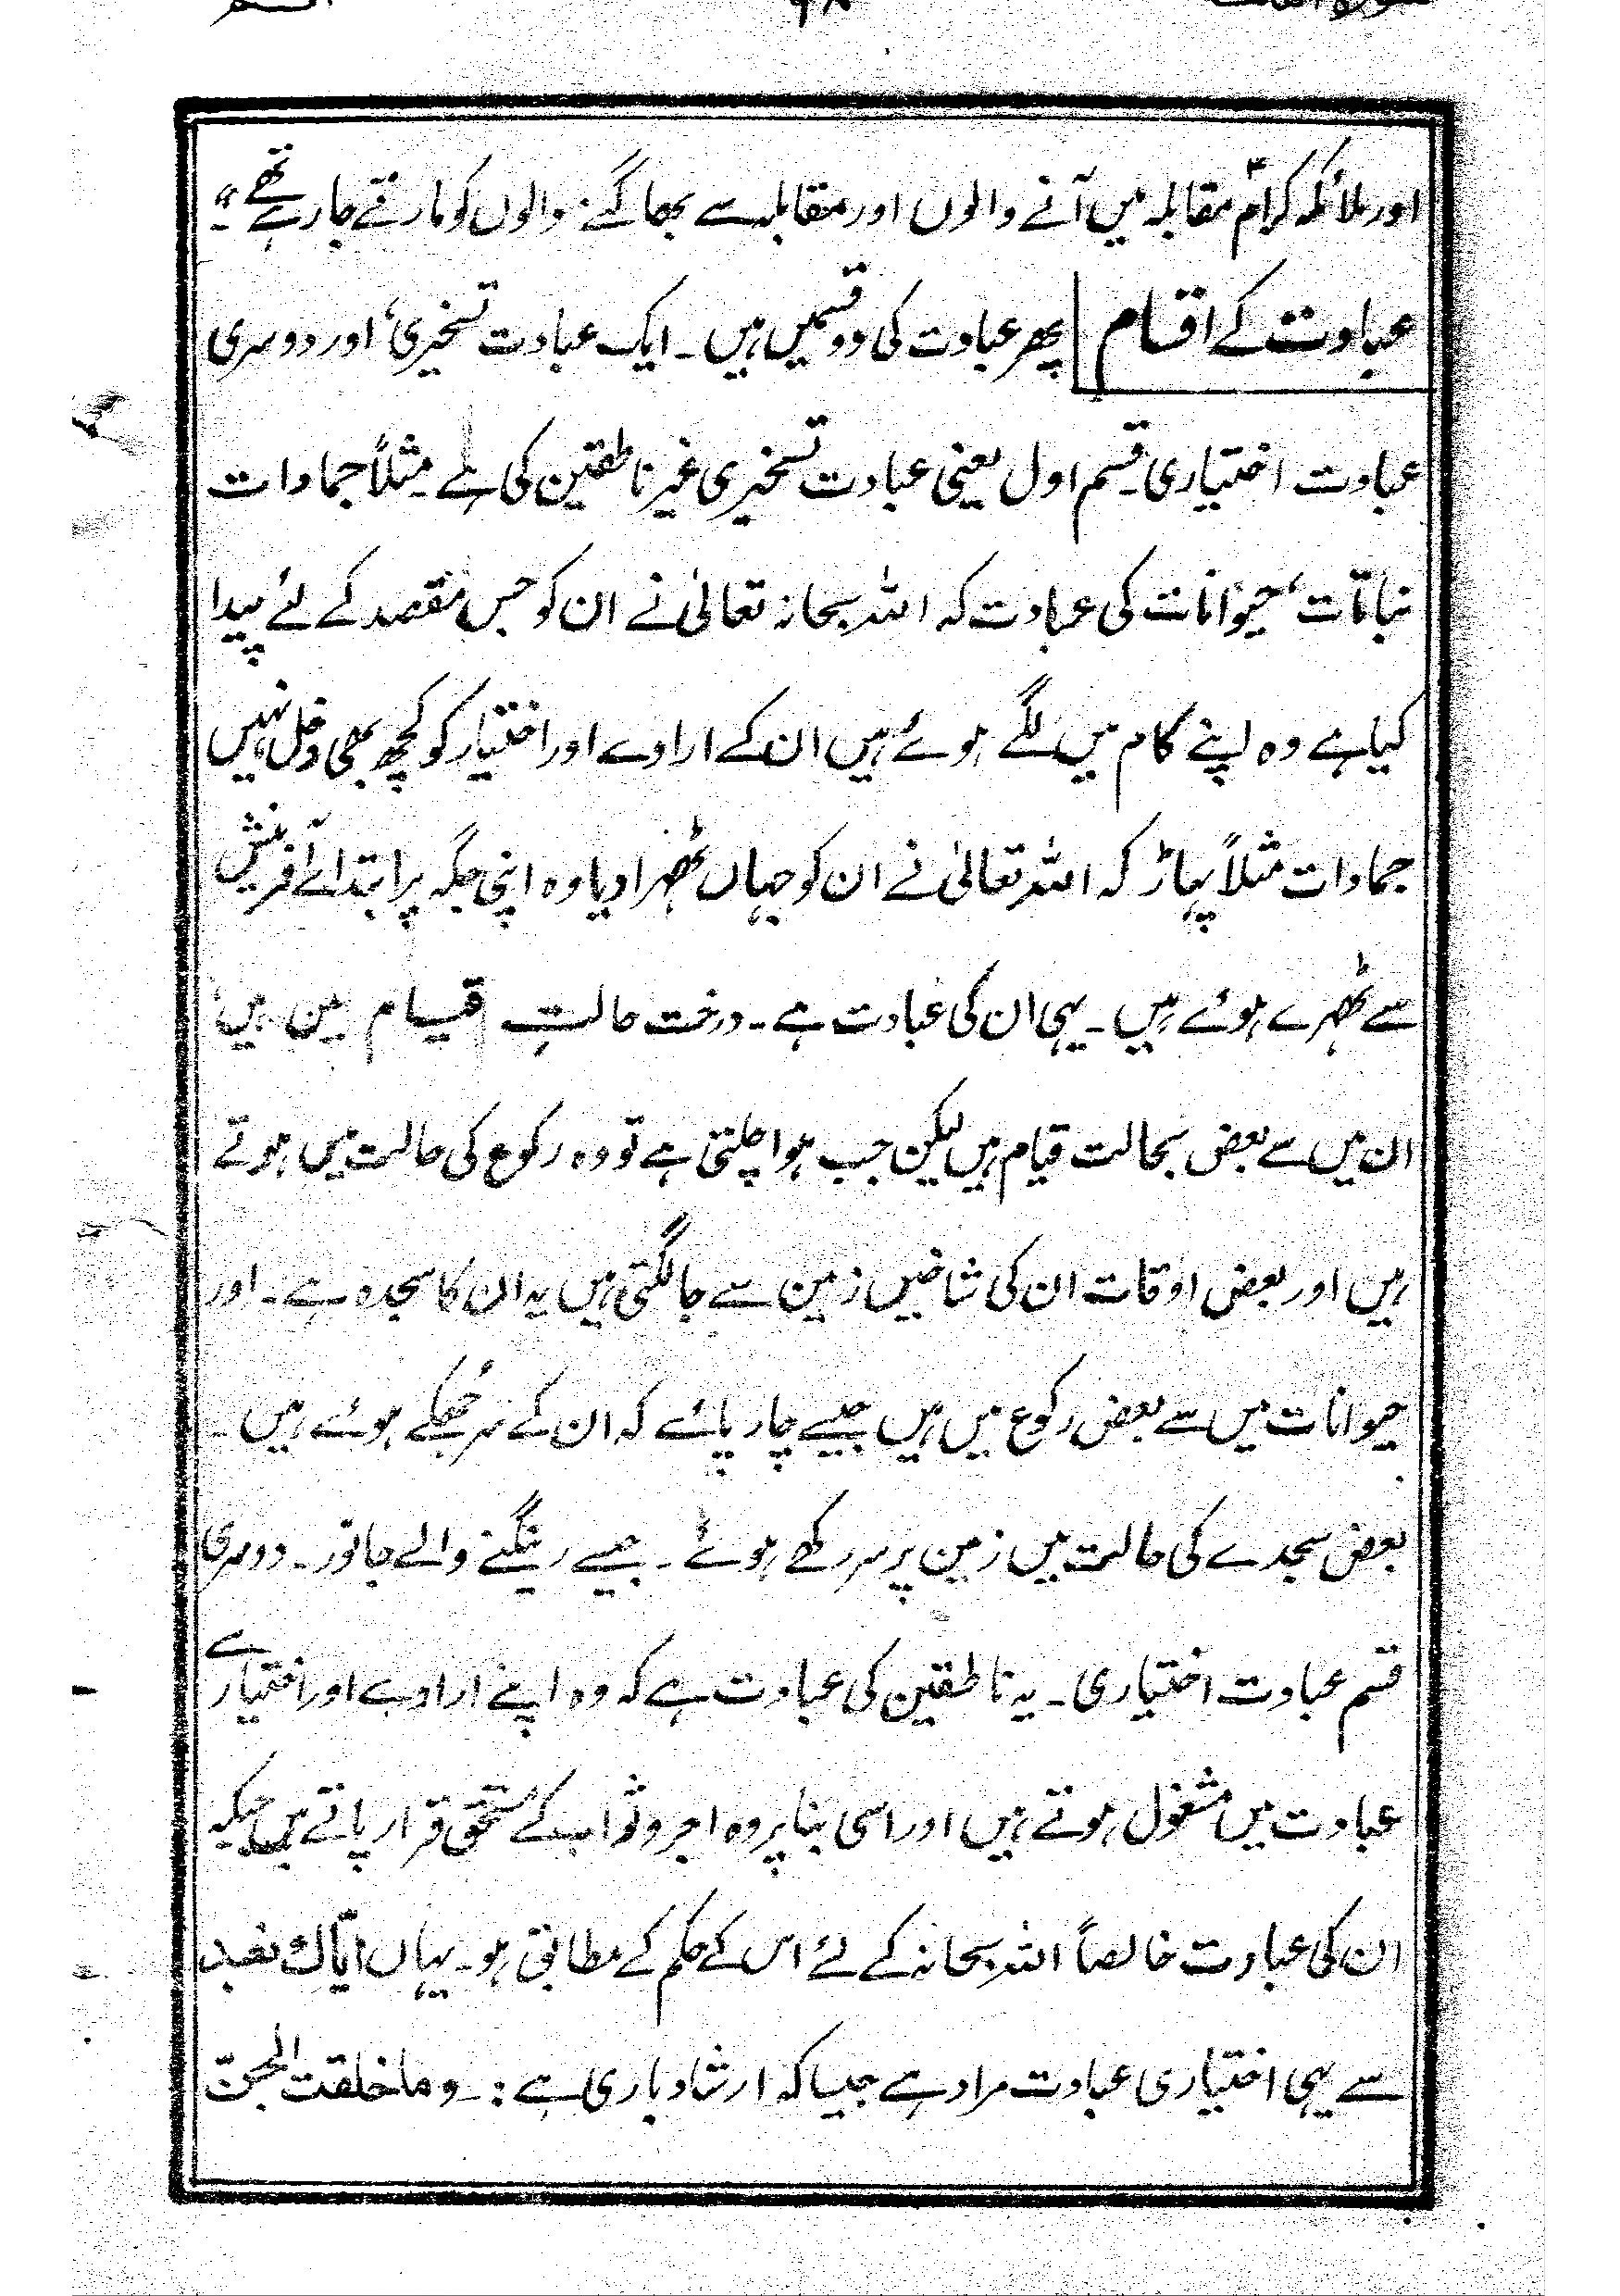 اور ملائکہ کرامؑ مقابلہ میں آنے والوں اور مقابلہ سے بھاگنے والوں کو مارتے جا رہے تھے"۔
عبادت کے اقسام پھر عبادت کی دو قسمیں ہیں۔ ایک عبادت تسخیری، اور دوسری
عبادت اختیاری۔ قسم اول یعنی عبادت تسخیری غیر ناطقین کی ہے۔ مثلاً جمادات
نباتات، حیوانات کی عبادت کہ اللہ سبحانہ تعالیٰ نے ان کو جس مقصد کے لئے پیدا
کیا ہے وہ اپنے کام میں لگے ہوئے ہیں ان کے ارادے اور اختیار کو کچھ بھی دخل نہیں
جمادات مثلاً پہاڑ کہ اللہ تعالیٰ نے ان کو جہاں ٹھہرا دیا وہ اپنی جگہ پر ابتدائے آفرینش
سے ٹھہرے ہوئے ہیں۔ یہی ان کی عبادت ہے۔ درخت حالتِ قیام میں ہیں،
ان میں سے بعض بحالت قیام ہیں لیکن جب ہوا چلتی ہے تو وہ رکوع کی حالت میں ہوتے
ہیں اور بعض اوقات ان کی شاخیں زمین سے جا لگتی ہیں یہ ان کا سجدہ ہے۔ اور
حیوانات میں سے بعض رکوع میں ہیں جیسے چار پائے کہ ان کے سر جُھکے ہوئے ہیں۔
بعض سجدے کی حالت میں زمین پر سر رکھے ہوئے۔ جیسے رینگنے والے جانور۔ دوسری
قسم عبادت اختیاری۔ یہ ناطقین کی عبادت ہے کہ وہ اپنے ارادے اور اختیار سے
عبادت میں مشغول ہوتے ہیں اور اسی بنا پر وہ اجر و ثواب کے مستحق قرار پاتے ہیں جبکہ
ان کی عبادت خالصاً اللہ سبحانہ کے لئے اس کے حکم کے مطابق ہو۔ یہاں ایّاك نعبد
سے یہی اختیاری عبادت مراد ہے جیسا کہ ارشاد باری ہے :۔ و ما خلقت الجنّ